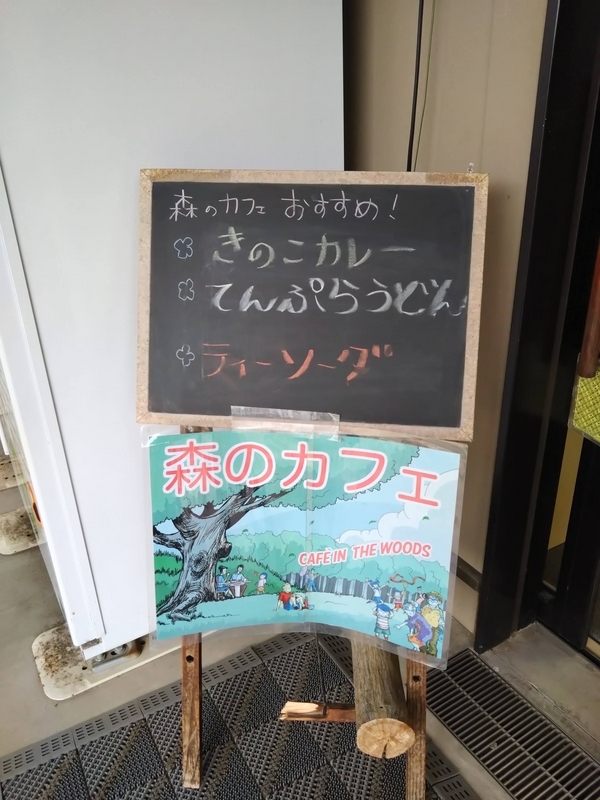 森のカフェ おすすめ!
きのこカレー
てんぷらうどん
ティーソーダ
森のカフェ
CAFÉ IN THE WOODS